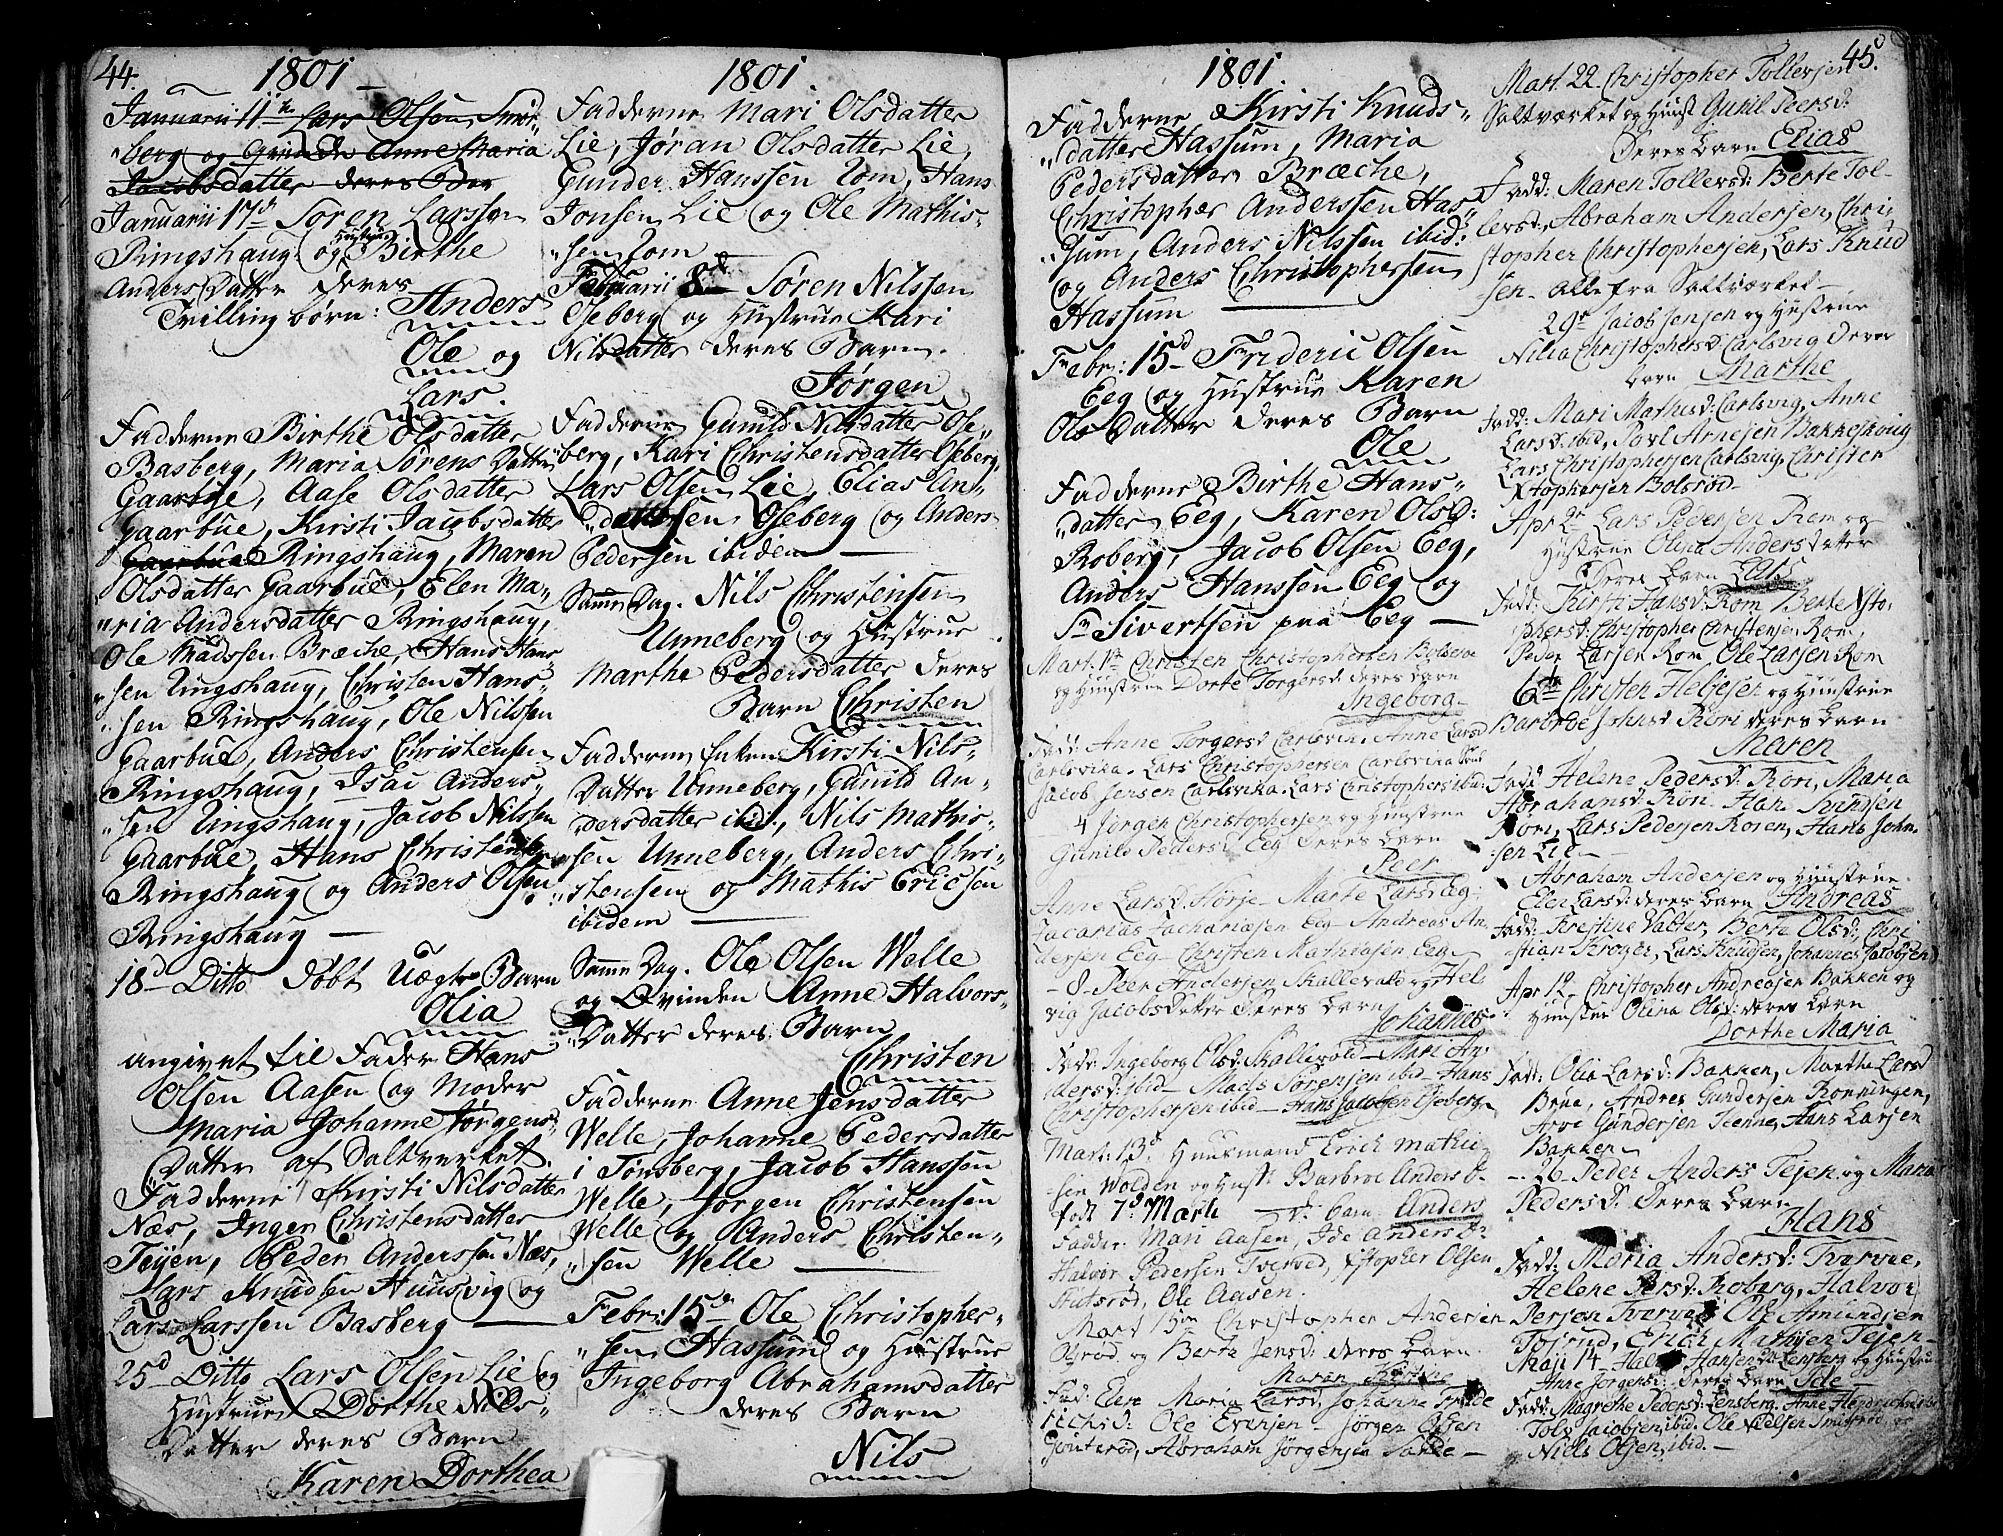 44.
1801
Januarii 11te Lars Olsen Smør-
berg og Qvinde Anne Maria
Jacobsdatter deres Bar
Januarii 17d Søren Larssen
Ringshaug og Hustrue Birthe
Anders Datter deres
Trilling børn: Anders
Ole og
Lars.
Fadderne Birthe Olsdatter
Basberg, Maria Sørens Datter
Gaarbue, Aase Olsdatter
Gaarbue, Kirsti Jacobsdatter
Gaarbue Ringshaug, Maren
Olsdatter Gaarbue, Elen Ma-
ria Andersdatter Ringshaug,
Ole Madssen Bræche, Hans Hans-
sen Ringshaug, Christen Hans-
sen Ringshaug, Ole Nilssen
Gaarbue, Anders Christensen
Ringshaug, Isac Anders-
sen Ringshaug, Jacob Nilssen
Gaarbue, Hans Christensen
Ringshaug og Anders Olsen
Ringshaug —
18d Ditto døbt Uægte Barn
Olia
angivet til Fader Hans
Olsen Aasen og Moder
Maria Johanne Jørgens-
Datter af Saltverket.
Fadderne Kirsti Nilsdatter
Næs, Inger Christensdatter
Teyen, Peder Anderssen Næs,
Lars Knudsen Huusvig og
Lars Larssen Basberg —
25d Ditto Lars Olsen Lie og
Hustrue Dorthe Nils-
Datter deres Barn
Karen Dorthea
1801.
Fadderne Mari Olsdatter
Lie, Jøran Olsdatter Lie,
Gunder Hanssen Rom, Hans
Jonsen Lie og Ole Mathis-
sen Rom
Februarii 8d Søren Nilssen
Oseberg og Hustrue Kari
Nilsdatter deres Barn.
Jørgen
Fadderne Gunild Nilsdatter Ose-
berg, Kari Christensdatter Oseberg,
Lars Olsen Lie, Elias An-
derssen Oseberg og Anders
Pedersen ibidem —
Samme Dag. Nils Christensen
Unneberg og Hustrue
Marthe Pedersdatter deres
Barn Christen
Fadderne Enken Kirsti Nils-
Datter Unneberg, Gunild An-
dersdatter ibid., Nils Mathis-
sen Unneberg, Anders Chri-
stensen og Mathis Ericsen
ibidem —
Samme Dag. Ole Olsen Welle
og Qvinden Anne Halvors-
Datter deres Barn
Christen
Fadderne Anne Jensdatter
Welle, Johanne Pedersdatter
i Tønsberg, Jacob Hanssen
Welle, Jørgen Christensen
Welle og Anders Christen-
sen Welle —
Febr: 15de Ole Christopher-
sen Hassum og Hustrue
Ingeborg Abrahamsdatter
deres Barn
Nils
1801.
Fadderne Kirsti Knuds-
datter Hassum, Maria
Pedersdatter Bræche,
Christopher Anderssen Has-
sum, Anders Nilssen ibid:
og Anders Christophersen
Hassum —
Febr: 15d Frideric Olsen
Eeg og Hustrue Karen
Ols Datter deres Barn
Ole
Fadderne Birthe Hans-
datter Eeg, Karen Olsd:
Roberg, Jacob Olsen Eeg,
Anders Hanssen Eeg og
Sr Sivertsen paa Eeg —
Mart. 1st Christen Christophersen
og Huustrue Dorte Torgersd: deres barn
Ingeborg
Fadd: Anne Torgersd Carlsvik, Anne Larsd
Carlsvika. Lars Christophersen Carlsvika
Jacob Jensen Carlsvika. Lars Christophers: ibid.
Jørgen Christophersen og Huustrue
Gunild Pedersd. Eeg deres barn
Peer
Anne Larsd. Størje — Marte Larsd Eeg
Zacarias Zachariasen Eeg — Andreas An
dersen Eeg — Christen Mathiasen Eeg —
— 8 — Peer Andersen Skallevold og Hel
vig Jacobsdatter deres barn
Johannes
Fadd: Ingeborg Olsd: Skallevold — Mari An
dersd: ibid — Mads Sørensen ibid — Hans
Christophersen ibid — Hans Jacobsen Oseberg
Mart: 13d Huusmand Erich Mathi
sen Wolden og Hust: Barbroe Anders D.
født 7d Marti — d: barn Anders
Faddr. Mari Aasen, Ide Anders Dr
Halvor Pedersen Tverved, Xstopher Olsen
Stutsrød, Ole Aasen.
Mart 15de Christopher Andersen
Olsrød og Berte Jensd: deres barn
Maren
Fad: Elen Maria Larsd, Johanne Fride
richsd: Ole Evensen — Jørgen Olsen
Gouterød, Abraham Jørgensen Sande —
45.
Mart. 22 Christopher Tollevsen
Saltværket og Huust Gunil Peersd:
Deres barn Elias
Fadd: Maren Tollevsd: Berte Tol-
levsd:, Abraham Andersen, Chri
stopher Christophersen, Lars Knud
sen — alle fra Saltværket —
29de Jacob Jensen og Hustrue
Nilia Christophersd: Carlsvig deres
barn Marthe
Fadd: Mari Mathisd: Carlsvig, Anne
Larsd: ibid, Povl Arnesen Bakkeskovig
Lars Christophersen Carlsvig, Christen
Xstophersen Bolsrød —
Apr 2de Lars Pedersen Rom og
Hustrue Olina Andersdatter
Deres barn Lars
Fadd: Kirsti Hansd: Rom Berte Xsto-
phersd: Christopher Christensen Rom,
Peder Larsen Rom, Ole Larsen Rom
6te Christen Helgesen og Huustrue
Barbroe Johnsd Røri deres barn
Maren
Fadd: Helene Pedersd: Røri, Maria
Abrahamsd: Røri. Hans
Rom, Lars Pedersen Rosen, Hans John-
sen Lie —
Abraham Andersen og Huustrue
Elen Larsd: deres barn Andreas
Fadd: Kirstine Valter, Berte Olsd:, Chri
stian Kroger, Lars Knudsen, Johannes Jacobsen
Apr 12 Christopher Andreasen Bakken og
Hustrue Olina Olsd: deres barn
Dorthe Maria
Fadd: Olia Larsd: Bakken, Marthe Larsd
Brue, Andres Gundersen Rønningen,
Arve Gundersen, Hans Larsen
Bakken
— 26 — Peder Anders Tejen og Maria
Pedersd: Deres barn
Hans
Fadd: Maria Andersd: Tverved,
Helene Persd: Roberg, Halvor
Persen Tverved Ole Amundsen
Tofsrud, Erich Mathisen Tejen —
Maji 14 — Hansen Lensberg og Huustru
Anne Jørgensd: deres barn Ide
Fadd: Magrethe Pedersd: Lensberg, Anne Hendrichsd ibid
Tolv Jacobsen, ibid. Ole Nielsen Smidsrød, og
Niels Olsen, ibid. —